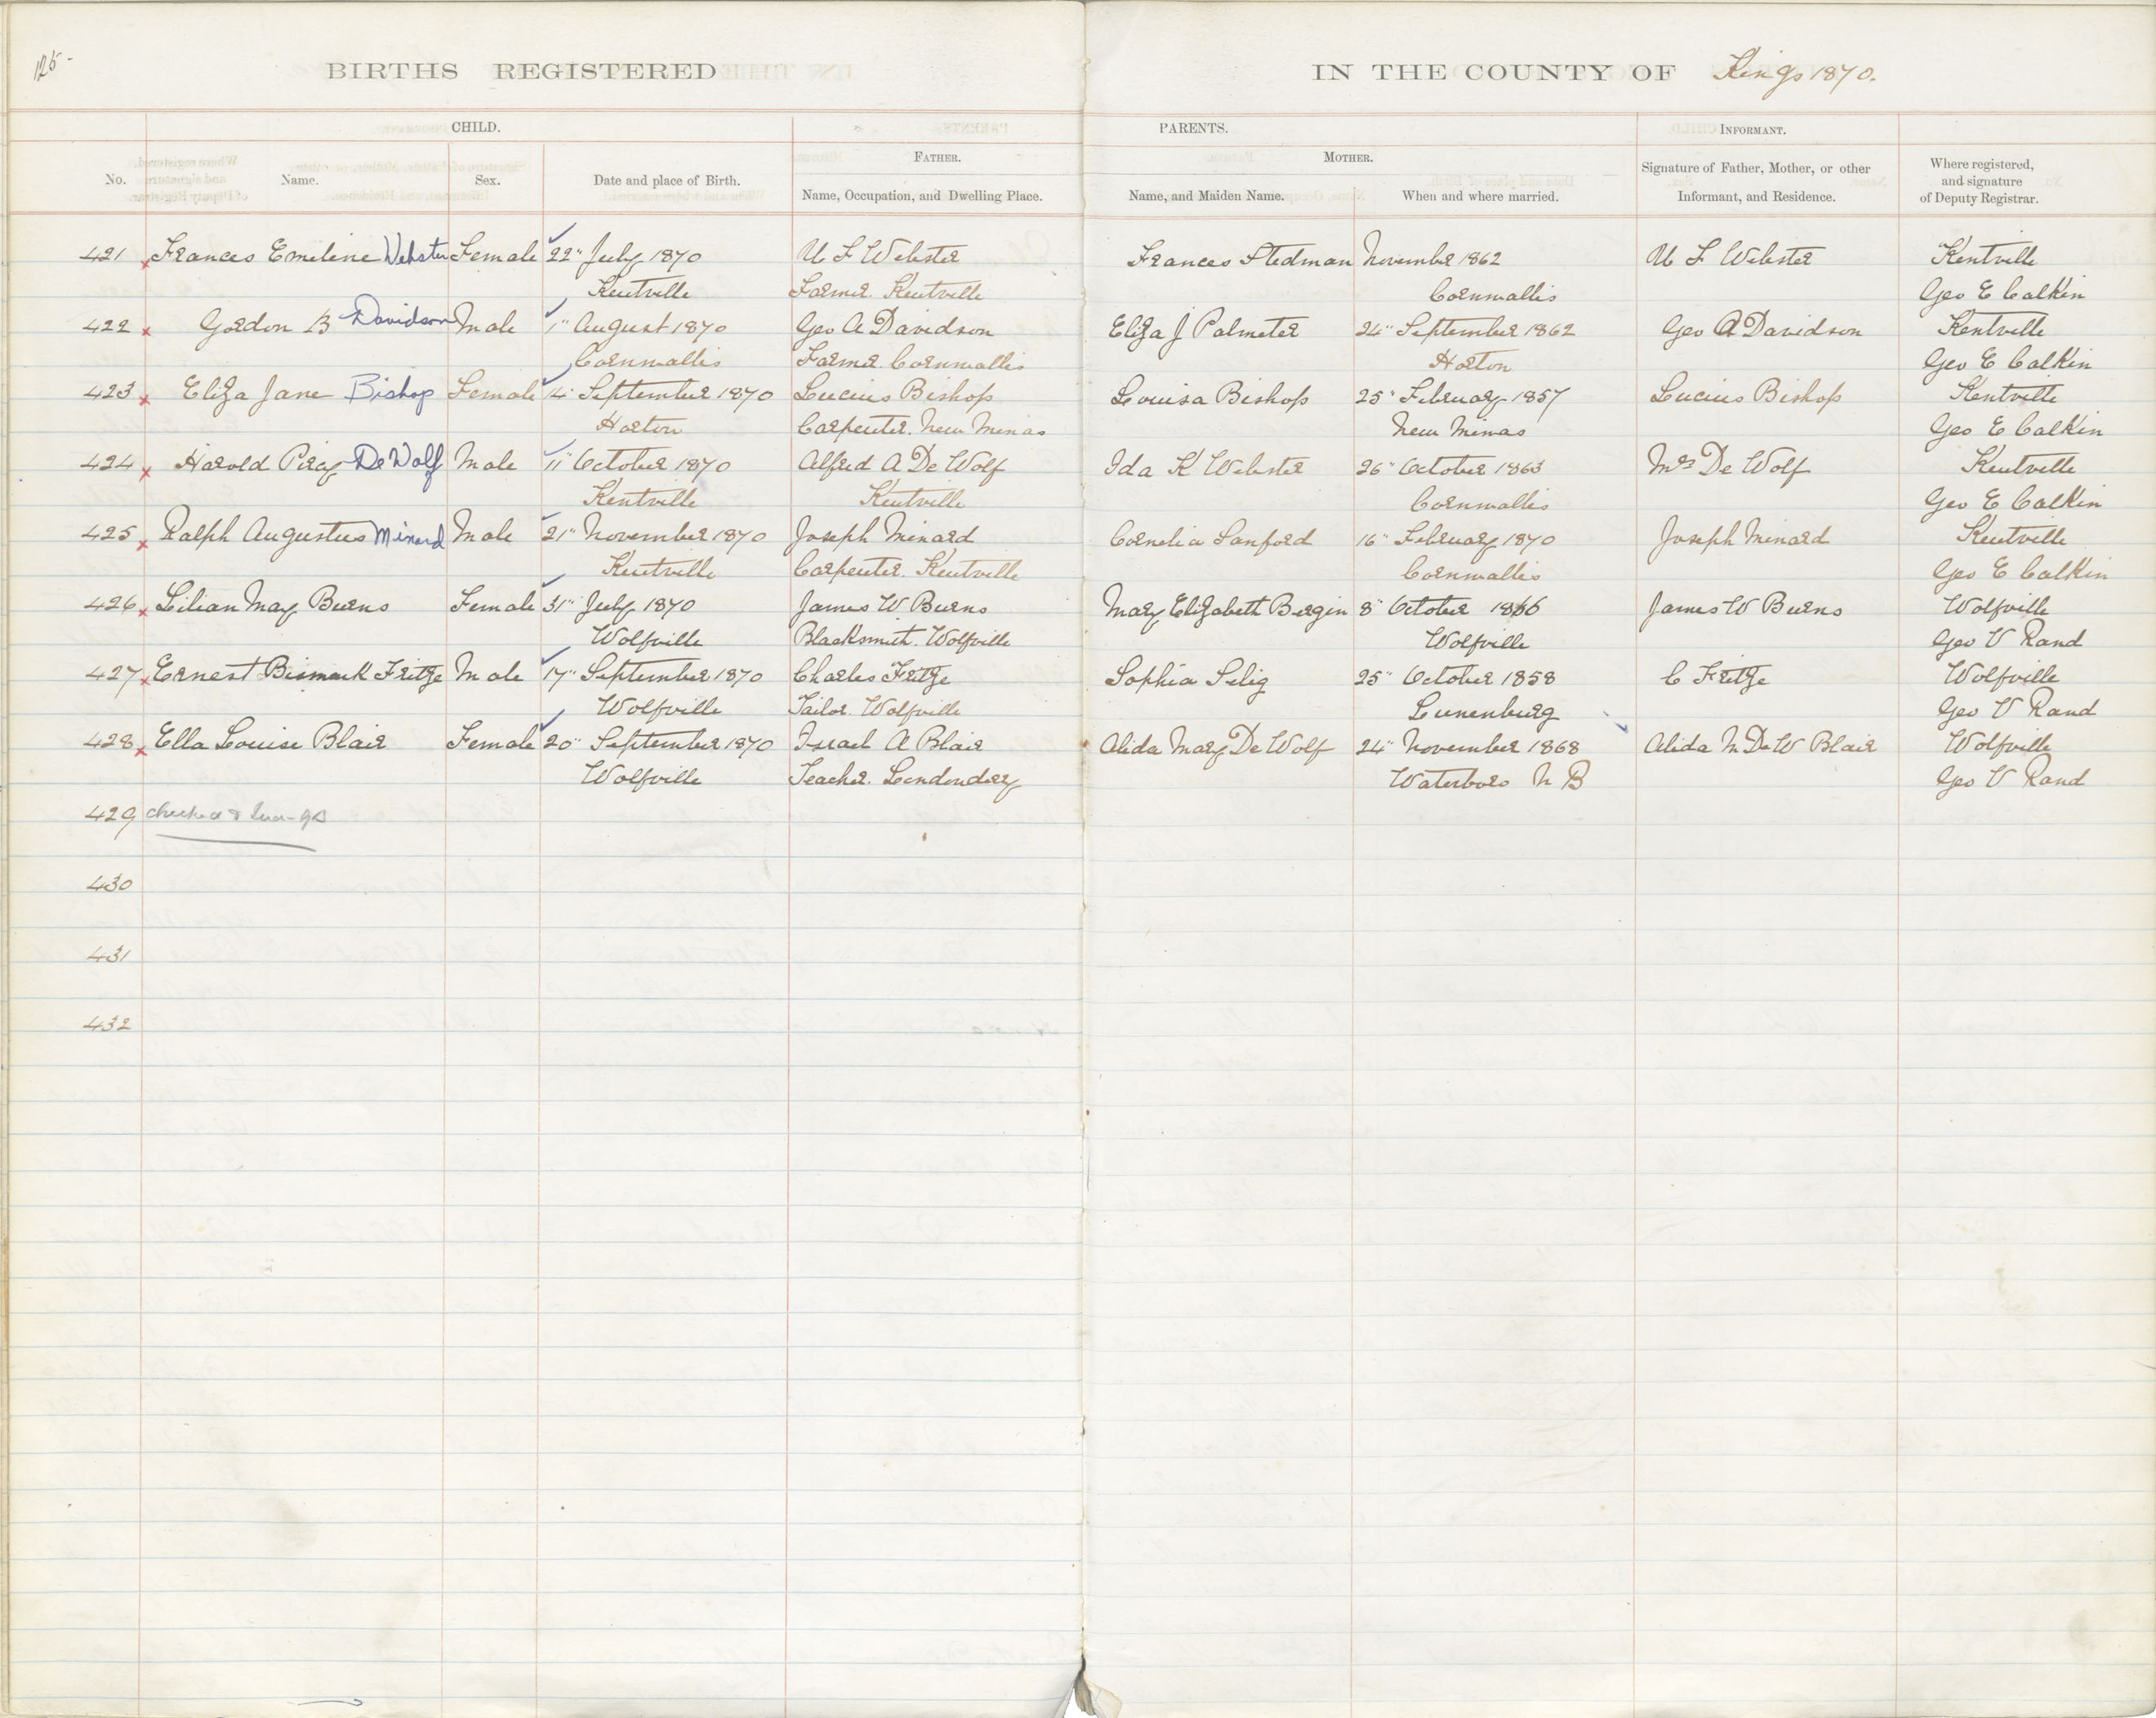 125-
BIRTHS REGISTERED IN THE COUNTY OF Kings 1870.
CHILD. PARENTS. INFORMANT.
FATHER. MOTHER.
No. Name. Sex. Date and place of Birth. Name, Occupation, and Dwelling Place. Name, and Maiden Name. When and where married. Signature of Father, Mother, or other Informant, and Residence. Where registered, and signature of Deputy Registrar.
421 Frances Emeline Webster Female 22" July 1870 U F Webster Frances Stedman November 1862 U F Webster Kentville
Kentville Farmer. Kentville Cornwallis Geo E Calkin
422 Gordon B Davidson Male 1" August 1870 Geo A Davidson Eliza J Palmeter 24" September 1862 Geo A Davidson Kentville
Cornwallis Farmer. Cornwallis Horton Geo E Calkin
423 Eliza Jane Bishop Female 14" September 1870 Lucius Bishop Louisa Bishop 25" February 1857 Lucius Bishop Kentville
Horton Carpenter. New Minas New Minas Geo E Calkin
424 Harold De Wolf Male 11" October 1870 Alfred A De Wolf Ida K Webster 26" October 1863 Mrs De Wolf Kentville
Kentville Kentville Cornwallis Geo E Calkin
425 Ralph Augustus Minard Male 21" November 1870 Joseph Minard Cornelia Sanford 16" February 1870 Joseph Minard Kentville
Kentville Carpenter. Kentville Cornwallis Geo E Calkin
426 Lilian May Burns Female 31" July 1870 James W Burns Mary Elizabeth Bergin 8" October 1866 James W Burns Wolfville
Wolfville Blacksmith. Wolfville Wolfville Geo V Rand
427 Ernest Bismark Fritze Male 17" September 1870 Charles Fritze Sophia Selig 25" October 1858 C Fritze Wolfville
Wolfville Tailor. Wolfville Lunenburg Geo V Rand
428 Ella Louise Blair Female 20" September 1870 Israel A Blair Alida Mary De Wolf 24" November 1868 Alida M De W Blair Wolfville
Wolfville Teacher. Londonderry Waterboro N B Geo V Rand
429 checked
430
431
432